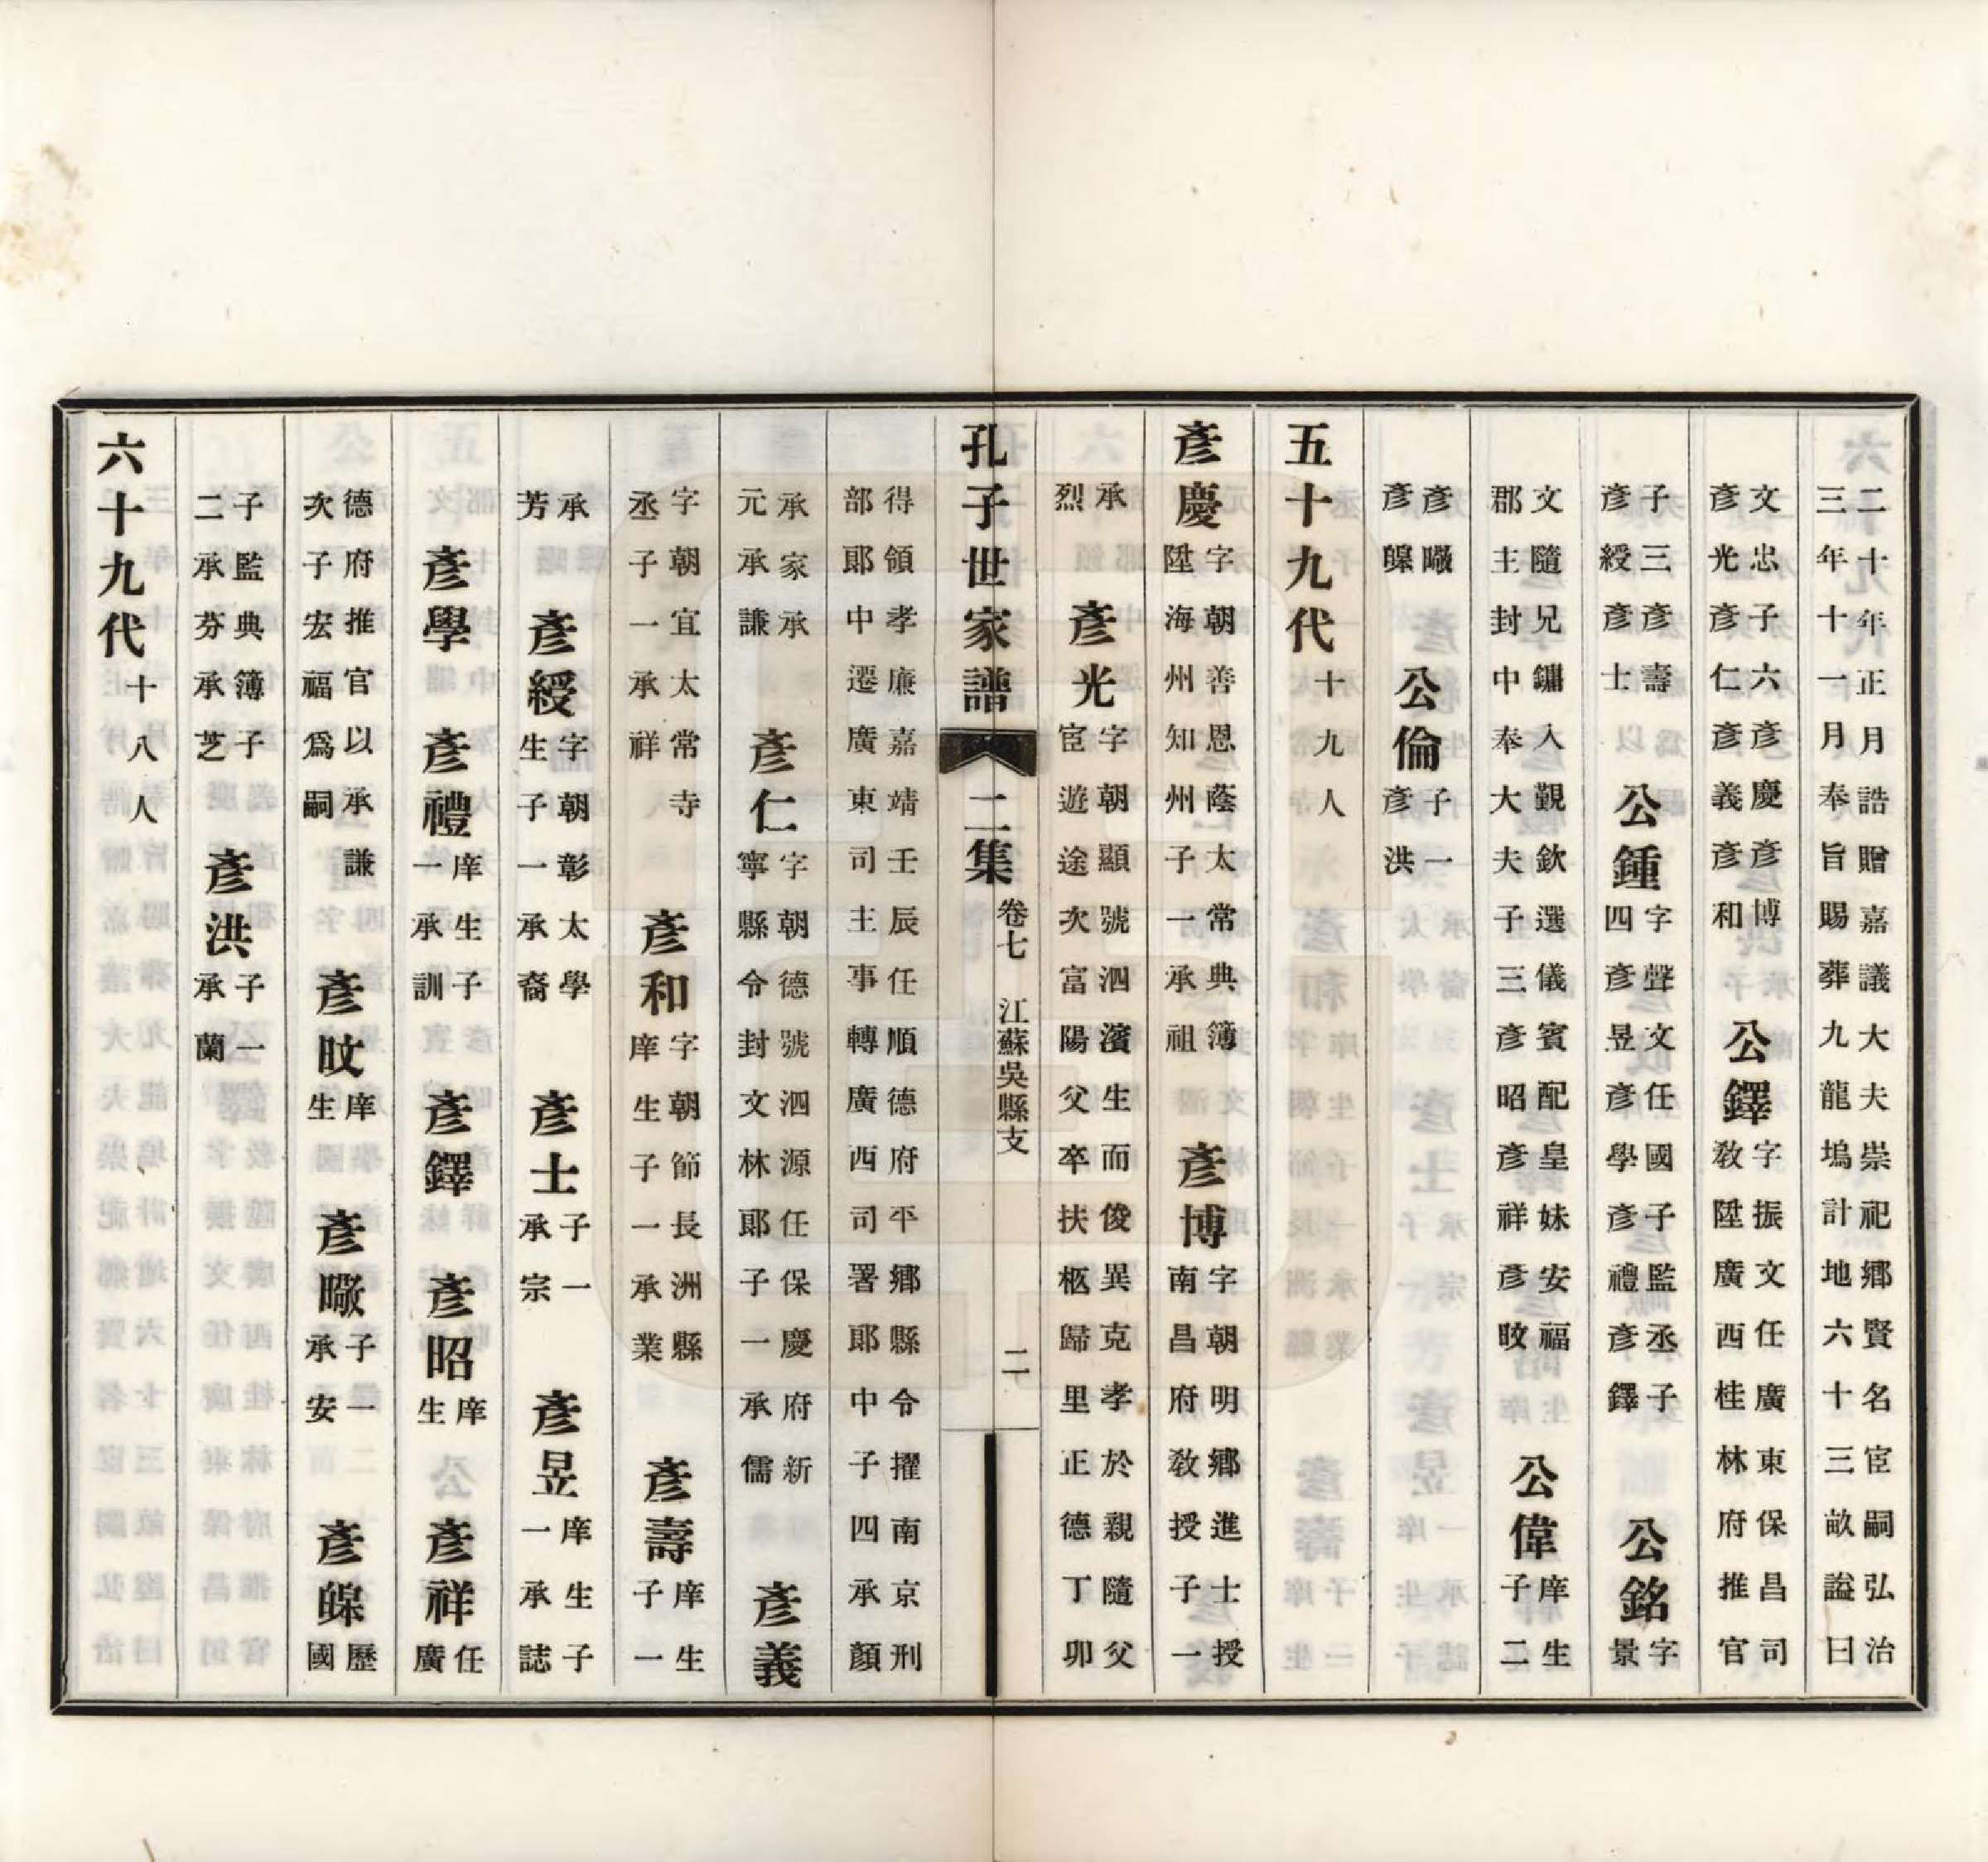 二十年正月誥贈嘉議大夫崇祀鄉賢名宦嗣弘治
三年十一月奉旨賜葬九龍塢計地六十三畝謚曰
文忠子六彥慶彥博
彥光彥仁彥義彥和
公鐸
字振文任廣東保昌司
教陞廣西桂林府推官
子三彥壽
彥綬彥士
公鍾
字聲文任國子監丞子
四彥昱彥學彥禮彥鐸
公銘
字
景
文隨兄鏽入覲欽選儀賓配皇妹安福
郡主封中奉大夫子三彥昭彥祥彥旼
公偉
庠生
子二
彥暾
彥皡
公倫
子一
彥洪
五十九代
十九人
彥慶
字朝善恩蔭太常典簿
陞海州知州子一承祖
彥博
字朝明鄉進士授
南昌府敎授子一
承
烈
彥光
字朝顯號泗濱生而俊異克孝於親隨父
宦遊途次富陽父卒扶柩歸里正德丁卯
孔子世家譜
二集
卷七 江蘇吳縣支
二
得領孝廉嘉靖壬辰任順德府平鄉縣令擢南京刑
部郎中遷廣東司主事轉廣西司署郎中子四承顏
承家承
元承謙
彥仁
字朝德號泗源任保慶府新
寧縣令封文林郎子一承儒
彥義
字朝宜太常寺
丞子一承祥
彥和
字朝節長洲縣
庠生子一承業
彥壽
庠生
子一
承
芳
彥綬
字朝彰太學
生子一承裔
彥士
子一
承宗
彥昱
庠生子
一承誌
彥學
彥禮
庠生子
一承訓
彥鐸
彥昭
庠
生
彥祥
任
廣
德府推官以承謙
次子宏福爲嗣
彥旼
庠
生
彥暾
子一
承安
彥皡
歷
國
子監典簿子
二承芬承芝
彥洪
子一
承蘭
六十九代
十八人